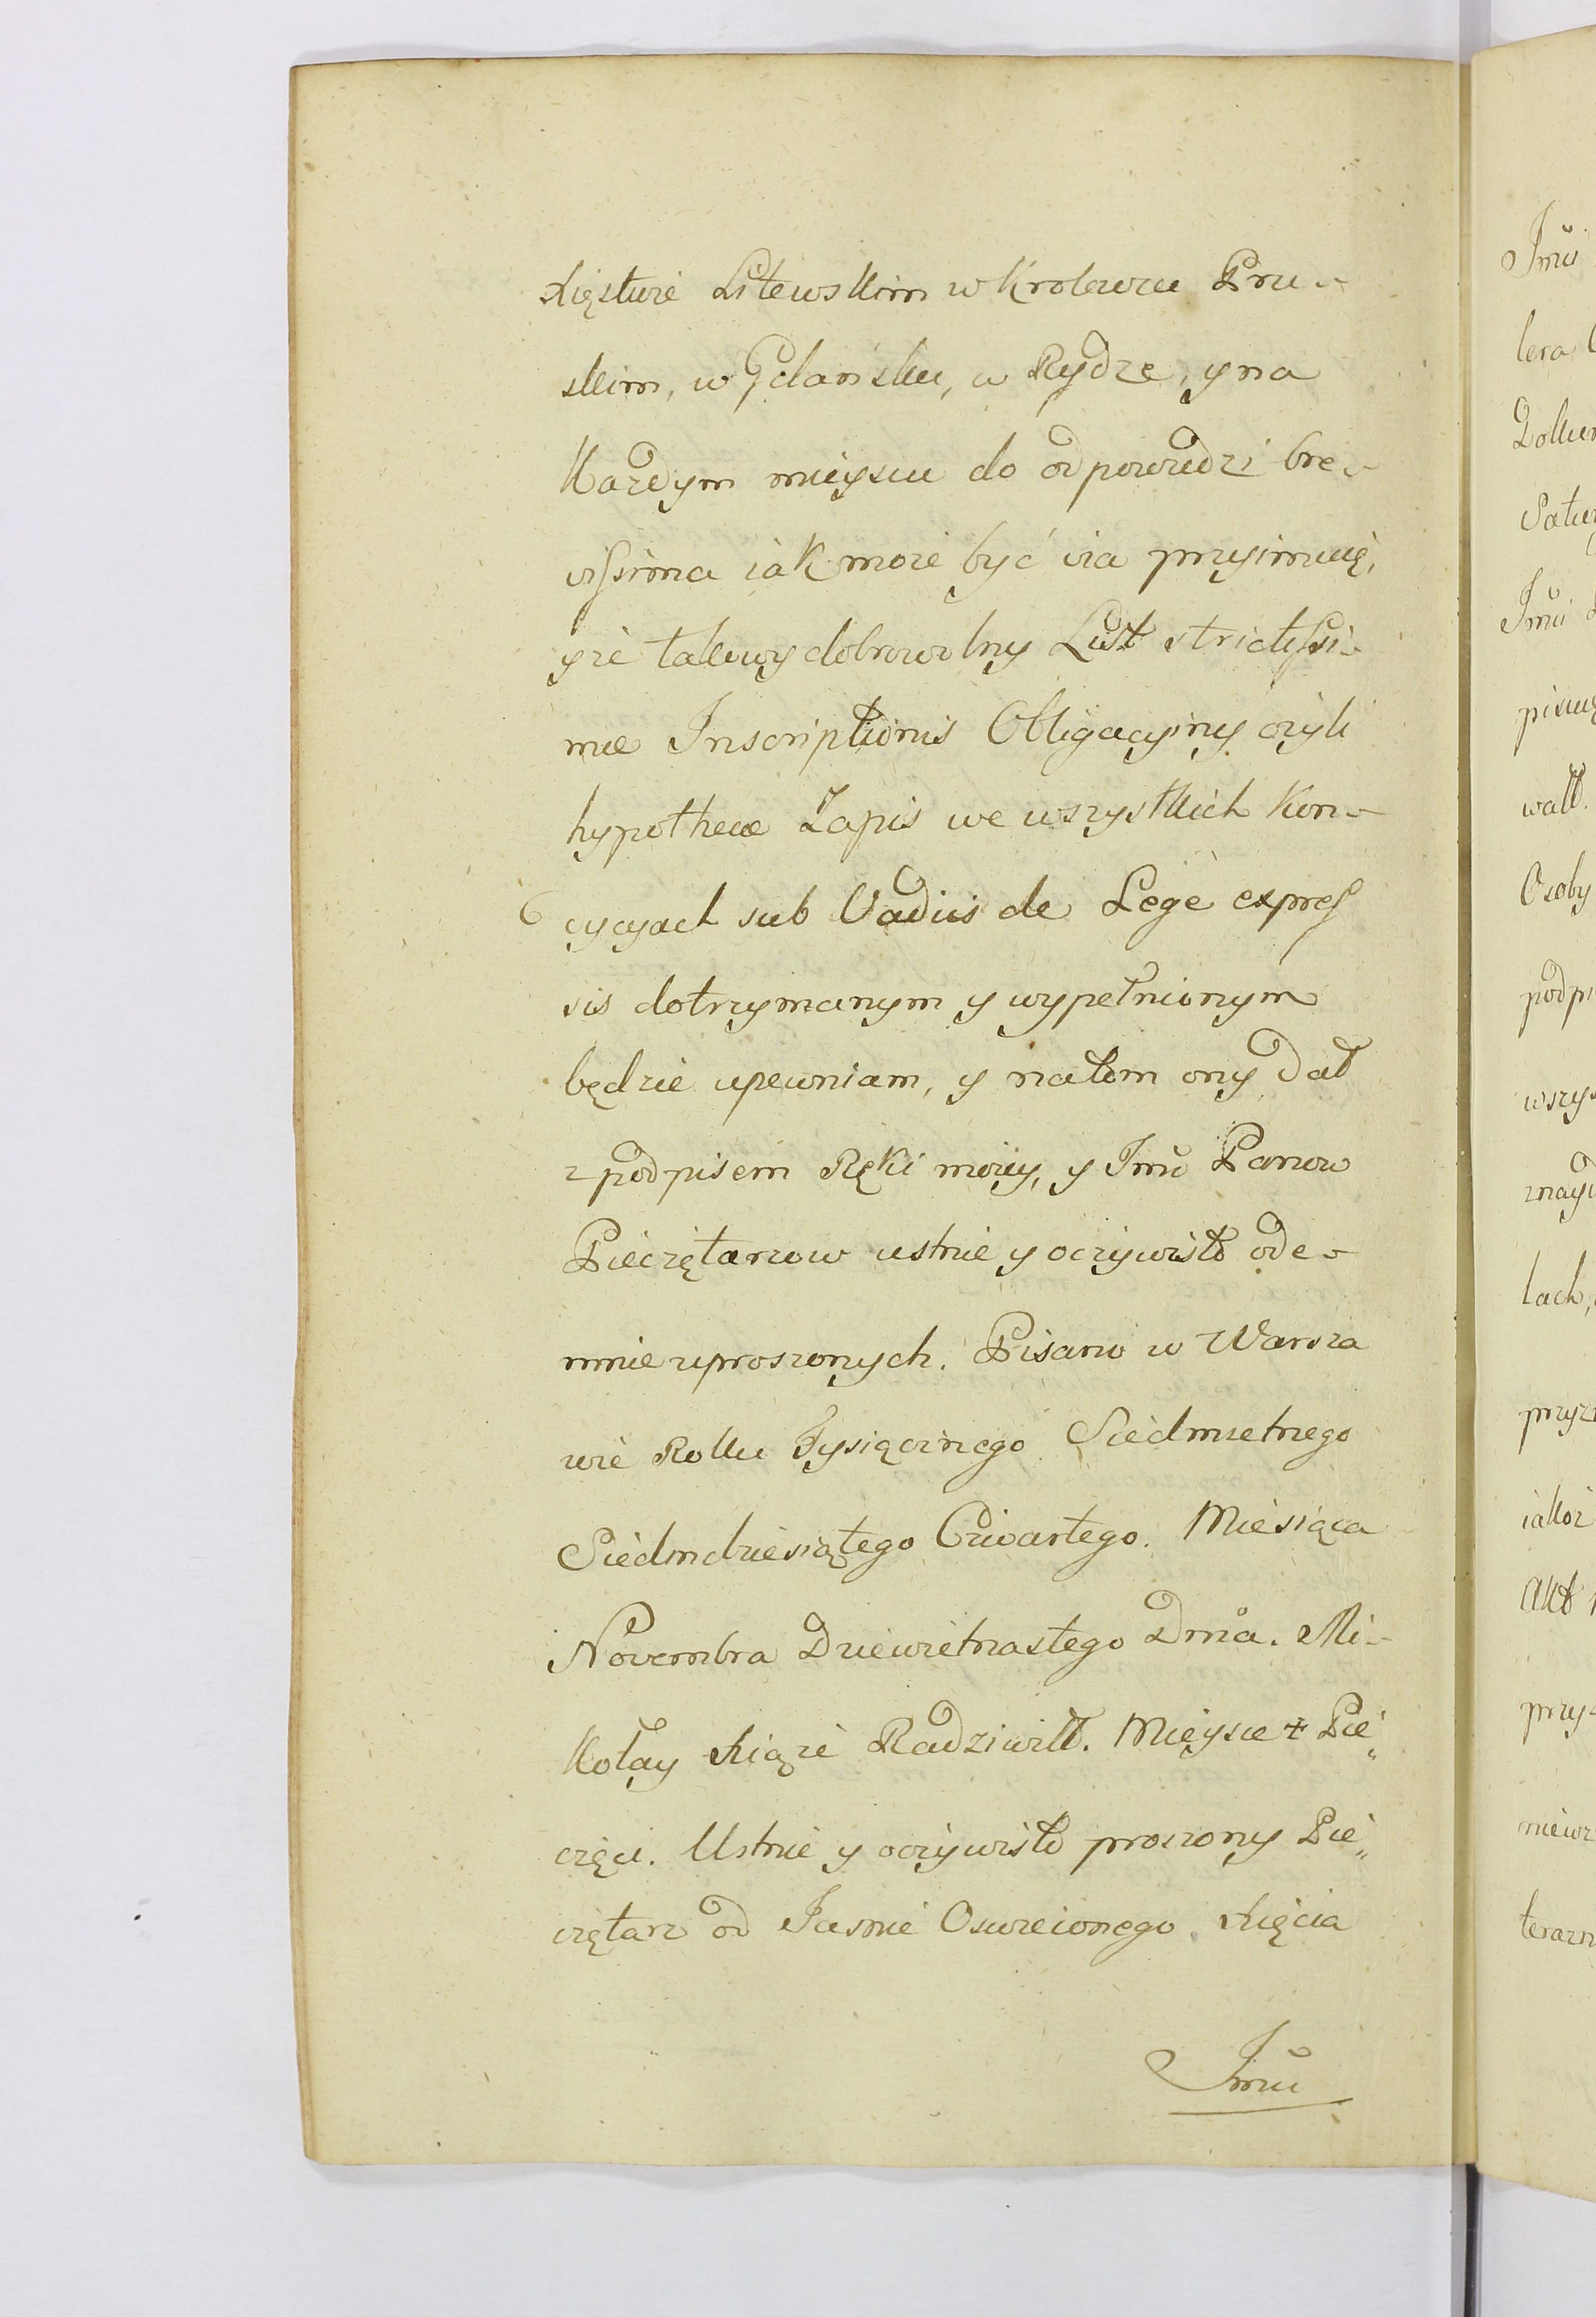 Xięstwie Litewskim w Krolewcu Pru-
skim, w Gdańsku, w Rydze, y na
Każdym mieyscu do odpowiedzi bre-
vissima iak może być via przyimuię,
y że takowy dobrowolny List strictissi-
mae Inscriptionis Obligacyiny czyli
hypothecae Zapis we wszystkich Kon-
cycyach sub Vadiis de Lege expres
sis dotrzymanym y wypełnionym
będzie upewniam, y na tom ony dał
z podpisem Ręki moiey, y Jmċ Panow
Pieczętarzow ustnie y oczywisto ode-
mnie uproszonych. Pisano w Warsza
wie Roku Tysiącznego Siedmsetnego
Siedmdziesiątego Czwartego. Miesiąca
Novembra Dziewietnastego Dnia. Mi-
kołay Xiąże Radziwiłł. Mieysce + Pie„
częci. Ustnie y oczywisto proszony Pie„
czętarz od Jasnie Oswieconego Xięcia
Jmci
Jmci
lera
podpi
wszys
lach,
iakoż
Akt
Osoby